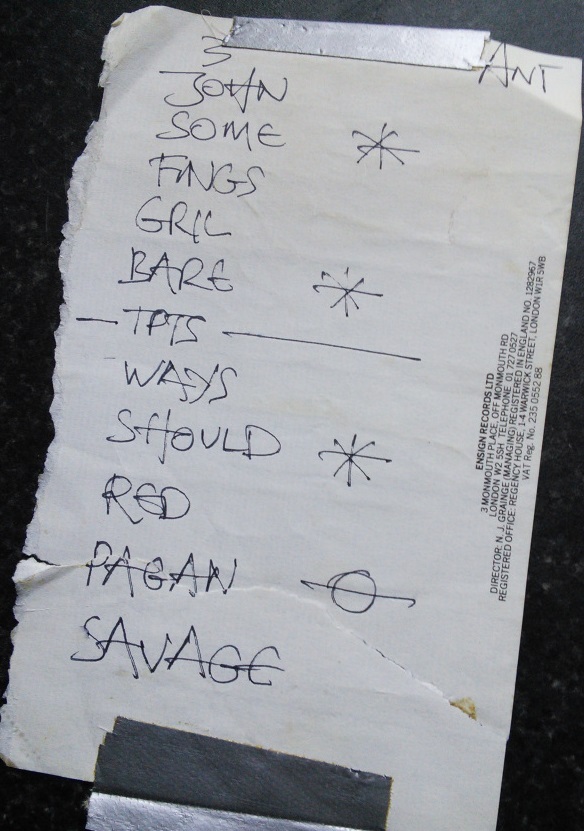 3
ANT
JOHN
SOME *
FINGS
GRIL
BARE *
— TPTS —
WAYS
SHOULD *
RED
PAGAN
SAVAGE
ENSIGN RECORDS LTD
3 MONMOUTH PLACE, OFF MONMOUTH RD
LONDON W2 5SH TELEPHONE 01 727 0527
DIRECTOR: N. J. GRAINGE (MANAGING) REGISTERED IN ENGLAND NO. 1282967
REGISTERED OFFICE: REGENCY HOUSE, 1-4 WARWICK STREET, LONDON W1R 5WB
VAT Reg. No. 235 0552 88